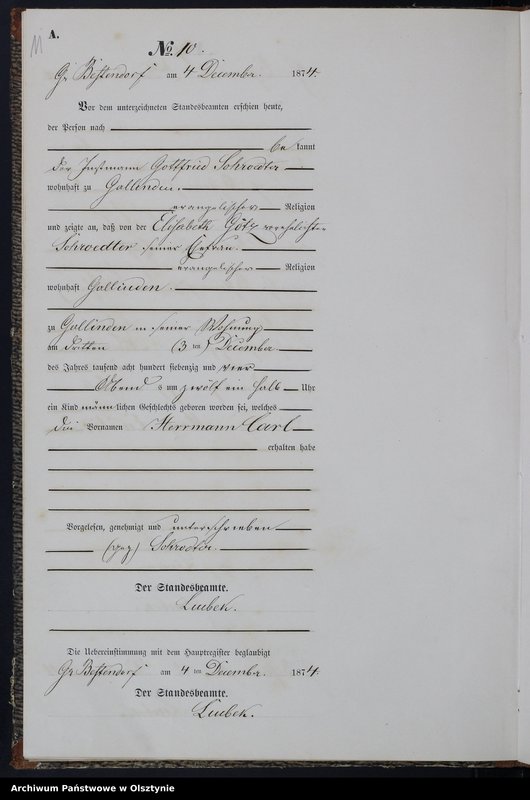 A.
11
No. 10.
Gr Bestendorf am 4 December. 1874.
Vor dem unterzeichneten Standesbeamten erschien heute,
der Person nach
be kannt
der Instmann Gottfried Schroedter
wohnhaft zu Gallinden.
evangelischer Religion
und zeigte an, daß von der Elisabeth Götz verehelichten
Schroedter seiner Ehefrau.
evangelischer Religion
wohnhaft Gallinden.
zu Gallinden in seiner Wohnung
am dritten (3 ten) December
des Jahres tausend acht hundert siebenzig und vier
Abend s um zwölf ein halb Uhr
ein Kind männlichen Geschlechts geboren worden sei, welches
die Vornamen Herrmann Carl
erhalten habe
Vorgelesen, genehmigt und unterschrieben
(gez) Schrodter.
Der Standesbeamte.
Luebek.
Die Uebereinstimmung mit dem Hauptregister beglaubigt
Gr Bestendorf am 4 ten December. 1874.
Der Standesbeamte.
Luebek.
Archiwum Państwowe w Olsztynie